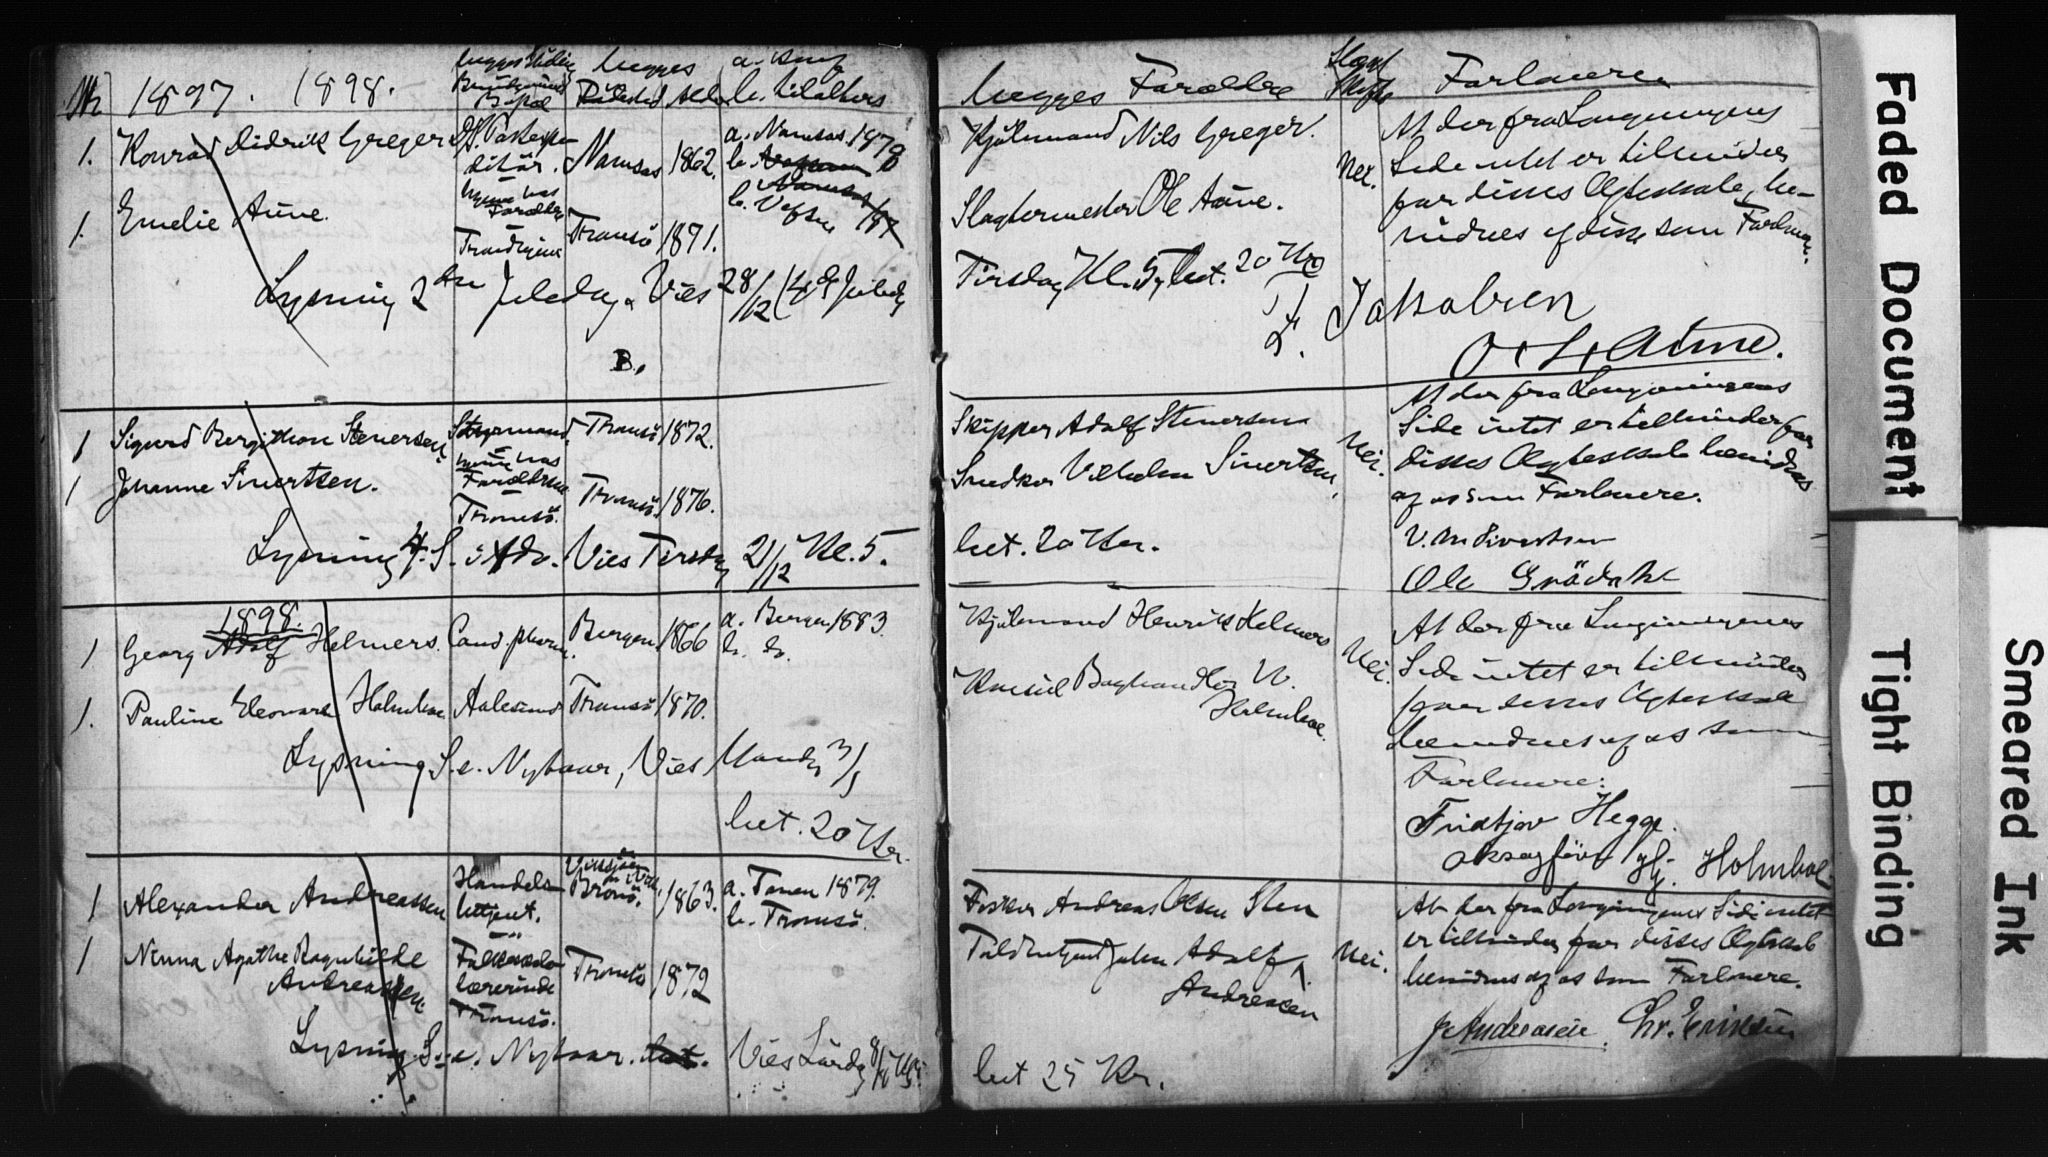 Nr 1897. 1898.
begges Födested Alder
1. Konrad Didrik Greger
ditör. Namsos 1862.
a. Namsos 1878
hjemme hos
Forældre
1. Emelie Aune.
Tromsö 1871.
b. Vefsn
Lysning 2den Juledag. Vies 28/12 (4de Juledag
B.
1 Sigurd Bergithon Stenersen. Styrmand. Tromsö 1872.
hjemme hos
Forældrene
1 Johanne Sivertsen. Tromsö. Tromsö. 1876.
Lysning 4. S. i Adv. Vies Tirsdag 21/12 Kl. 5.
1898.
1 Georg Adolf Helmers. Cand. pharm. Bergen 1866 a. Bergen 1883.
b. do.
1. Pauline Eleonore Holmboe Aalesund Tromsö 1870.
Lysning S. e. Nytaar, Vies Mandag 3/1
bet. 20 Kr.
1 Alexander Andreassen Handels
betjent. Brönö. 1863. a. Tanen 1879.
b. Tromsö.
1 Ninna Agathe Ragnhilde
Andreassen
lærerinde
Tromsö. Tromsö 1872
Lysning S. e. Nytaar. bet. Vies Lördag 8/1 Kl 5.
begges Forældre Forlovere
Kjöbmand Nils Greger. Nei.
Slagtermester Ole Aune.
At der fra Lovgivningens
Side intet er til hinder
for disses Ægteskab, be-
vidnes af disse som Forlovere.
Tirsdag Kl. 5, bet. 20 Kr
F. Jakobsen
O. L. Aune.
Skipper Adolf Stenersen Nei.
Snedker Vilhelm Sivertsen,
At der fra Lovgivningens
Side intet er til hinder for
disses Ægteskab bevidnes
af os som Forlovere.
bet. 20 Kr.
V. M Sivertsen
Ole Grödahl
Kjöbmand Henrik Helmers Nei.
Konsul Boghandler W.
Holmboe.
At der fra Lovgivningens
Side intet er til hinder
for disses Ægteskab
bevidnes af os som
Forlovere:
Fridtjov Hegge.
Hj. Holmboe
Fisker Andreas Olsen Sten Nei.
Toldbetjent Johan Adolf
Andreasen
At der fra Lovgivningens Side intet
er til hinder for disses Ægteskab
bevidnes af os som Forlovere.
J. Andreasen. Chr. Eriksen
bet 25 Kr.
Faded Document
Tight Binding
Smeared Ink